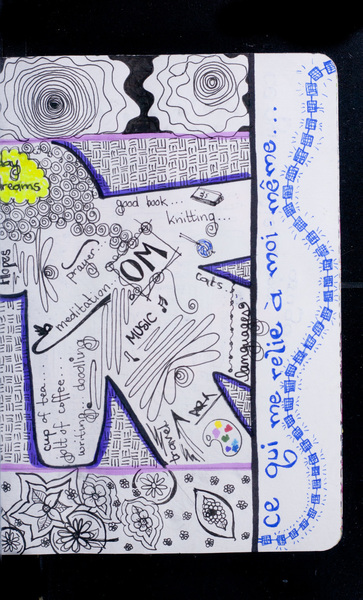 day
dreams
Hopes
good book...
knitting...
prayer...
OM
meditation
cats...
MUSIC
languages
cup of tea...
pot of coffee...
writing... doodling
travel
ce qui me relie a moi-même...